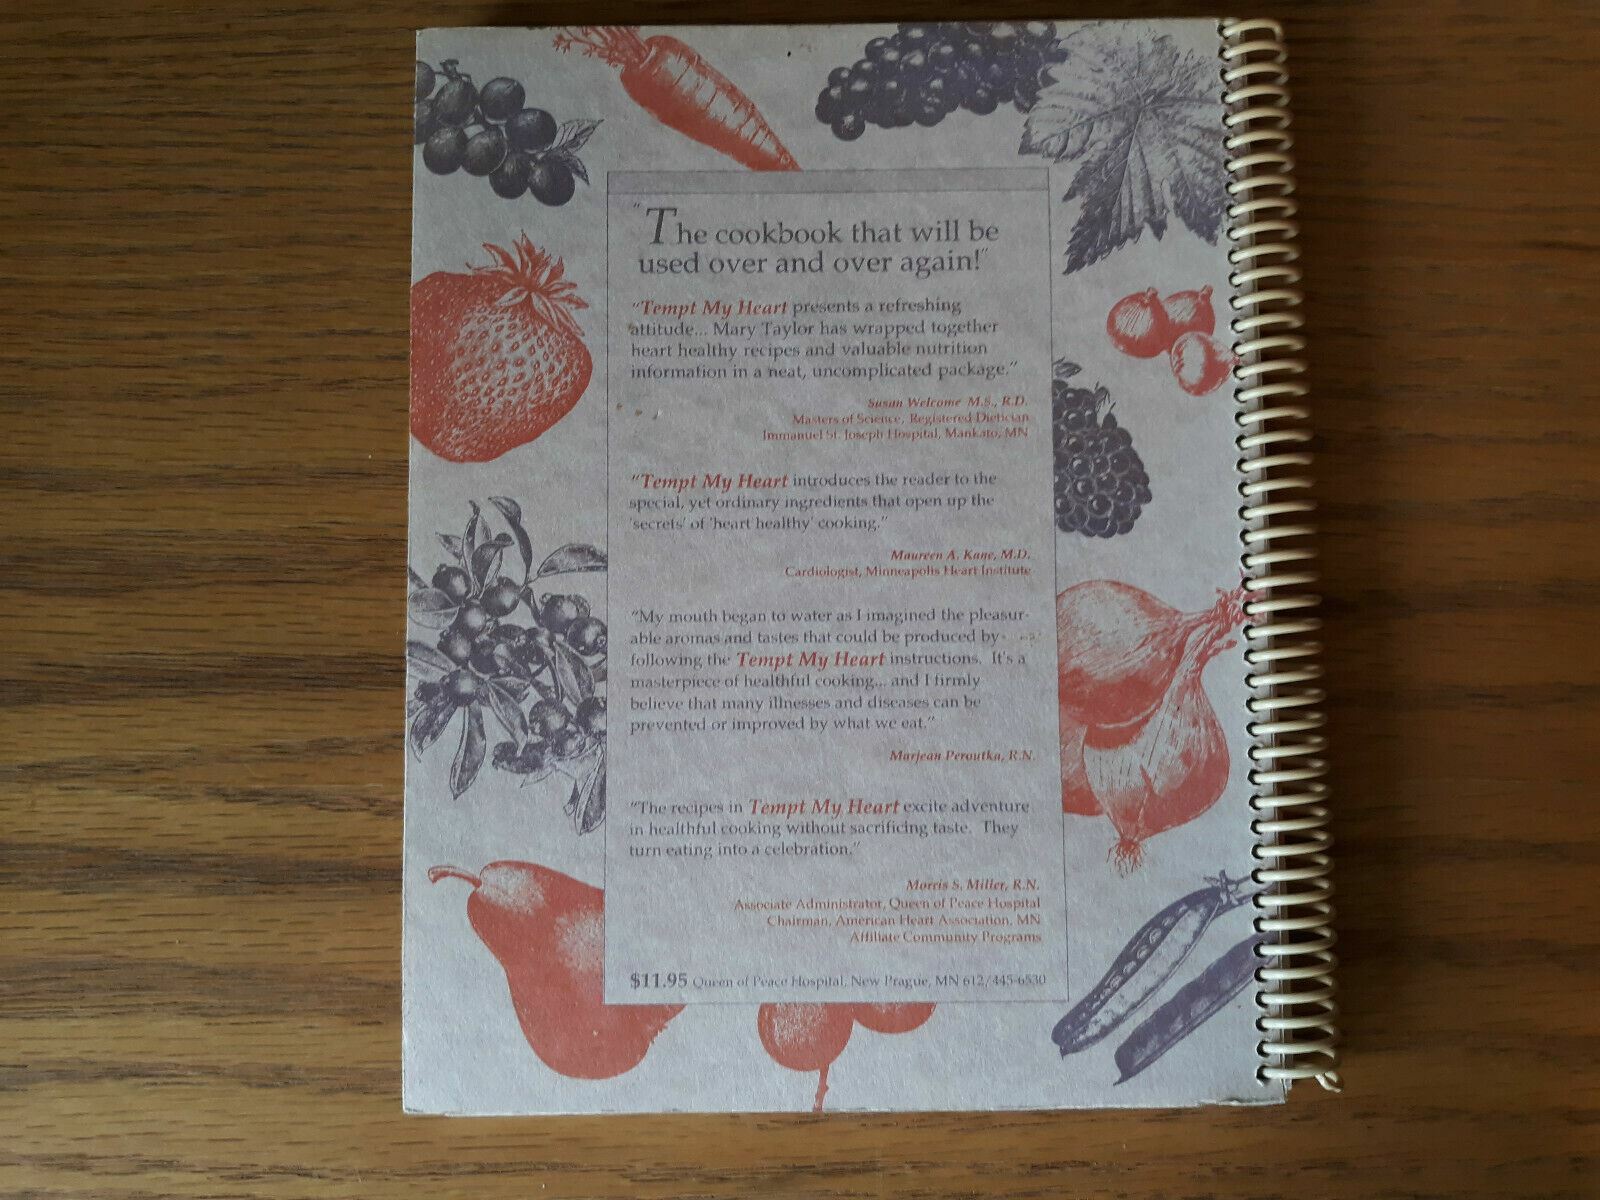 "The cookbook that will be
used over and over again!"
"Tempt My Heart presents a refreshing
attitude... Mary Taylor has wrapped together
heart healthy recipes and valuable nutrition
information in a neat, uncomplicated package."
Susan Welcome M.S., R.D.
Masters of Science, Registered Dietician
Immanuel St. Joseph Hospital, Mankato, MN
"Tempt My Heart introduces the reader to the
special, yet ordinary ingredients that open up the
'secrets' of 'heart healthy' cooking."
Maureen A. Kane, M.D.
Cardiologist, Minneapolis Heart Institute
"My mouth began to water as I imagined the pleasur-
able aromas and tastes that could be produced by
following the Tempt My Heart instructions. It's a
masterpiece of healthful cooking... and I firmly
believe that many illnesses and diseases can be
prevented or improved by what we eat."
Marjean Peroutka, R.N.
"The recipes in Tempt My Heart excite adventure
in healthful cooking without sacrificing taste. They
turn eating into a celebration."
Morris S. Miller, R.N.
Associate Administrator, Queen of Peace Hospital
Chairman, American Heart Association, MN
Affiliate Community Programs
$11.95 Queen of Peace Hospital, New Prague, MN 612/445-6530